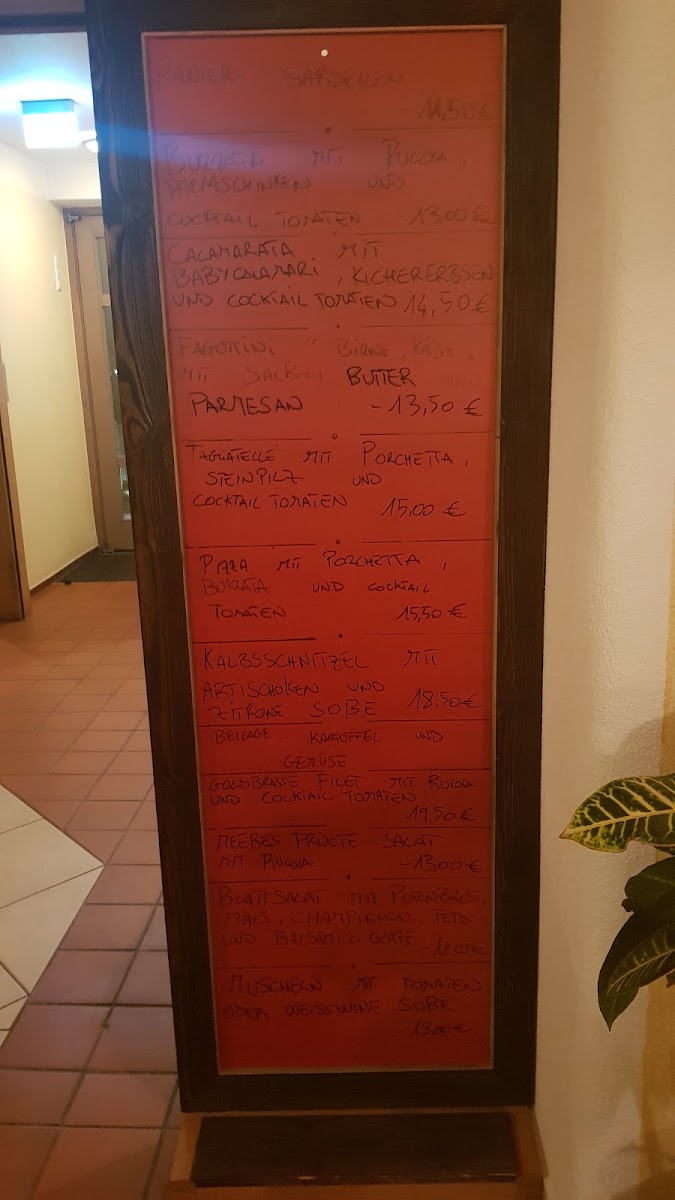 PANIERT SARDELLEN
- 11,50 €
BURRATA MIT RUCOLA,
PARMASCHINKEN UND
COCKTAIL TOMATEN - 13,00 €
CALAMARATA MIT
BABYCALAMARI, KICHERERBSEN
UND COCKTAIL TOMATEN 14,50 €
FAGOTTINI " BIRNE, KÄSE "
MIT SALBEI, BUTTER UND
PARMESAN - 13,50 €
TAGLIATELLE MIT PORCHETTA,
STEINPILZ UND
COCKTAIL TOMATEN 15,00 €
PIZZA MIT PORCHETTA,
BURRATA UND COCKTAIL
TOMATEN 15,50 €
KALBSSCHNITZEL MIT
ARTISCHOKEN UND
ZITRONE SOßE 18,50 €
BEILAGE: KARTOFFEL UND
GEMÜSE
GOLDBRASSE FILET MIT RUCOLA
UND COCKTAIL TOMATEN
19,50 €
MEERES FRÜCTE SALAT
MIT RUCOLA - 13,00 €
BLATTSALAT MIT PUTENBRUST,
MAIS, CHAMPIGNON, FETA
UND BALSAMICO GLACE - 12,00 €
MUSCHELN MIT TOMATEN
ODER WEISSWINE SOßE
- 13,00 €